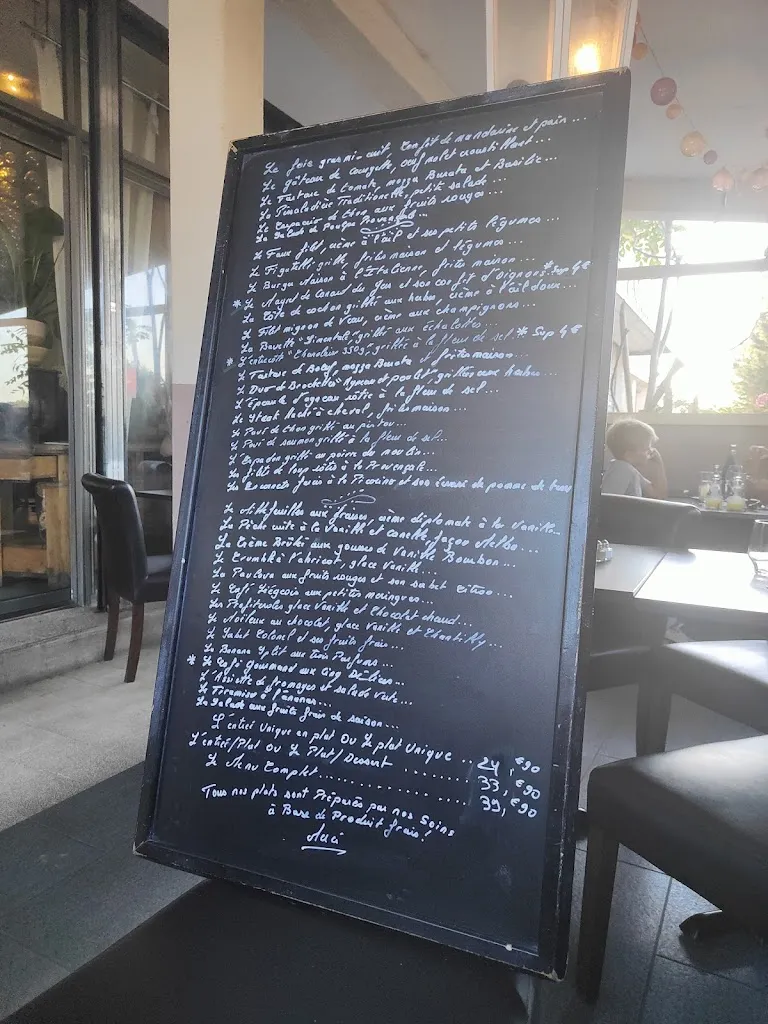 Le foie gras mi-cuit, Confit de mandarine et pain...
Le gâteau de courgette, oeuf mollet croustillant...
Le Tartare de tomate, mozza Burata et Basilic...
La Pissaladière Traditionelle, petite salade...
Le Carpaccio de thon aux fruits rouges...
La Salade de Poulpe Provençale...
Le Faux filet, crème à l'ail et ses petits légumes...
Le Figatelli grillé, frites maison et légumes...
Le Burger Maison à l'Italienne, frites maison...
* Le Magret de Canard du Gers et son confit d'oignons * Sup 4€
La Côte de cochon grillée aux herbes, crème à l'ail doux...
Le Filet mignon de Veau, crème aux champignons...
La Bavette "Simentale" grillée aux échalottes...
* L'entrecôte "Charolaise 350g" grillée à la fleur de sel * Sup 4€
Le Tartare de Boeuf, mozza Burata et frites maison...
Le Duo de Brochettes Agneau et poulet, grillées aux herbes...
L'Epaule d'agneau rôtie à la fleur de sel...
Le Steak haché à cheval, frites maison...
Le Pavé de thon grillé au pistou...
Le Pavé de saumon grillé à la fleur de sel...
L'Espadon grillé au poivre du moulin...
Les filets de loup rôtis à la Provençale...
Les frais à la et son écrasé de pomme de terre
Le Millefeuilles aux fraises, crème diplomate à la vanille...
La Pêche cuite à la Vanille et canelle façon Melba...
La Crème Brûlée aux gousses de Vanille Bourbon...
Le Crumble à l'abricot, glace vanille...
La Pavlova aux fruits rouges et son sorbet Citron...
Le Café Liégeois aux petites meringues...
Les Profiteroles glace Vanille et Chocolat chaud...
Le Moileux au chocolat, glace Vanille et Chantilly...
Le Sorbet Colonel et ses fruits frais...
La Banana Split aux trois Parfums...
* Le Café gourmand aux Cinq Délices...
L'Assiette de fromages et salade verte...
Le Tiramisu à l'ananas...
La Salade aux fruits frais de saison...
L'entrée Unique en plat Ou Le plat Unique .. 24,€90
L'entrée/Plat Ou Le Plat/Dessert ........ 33,€90
Le Menu Complet................ 39,€90
Tous nos plats sont Préparés par nos Soins
à Base de Produit frais!
Merci